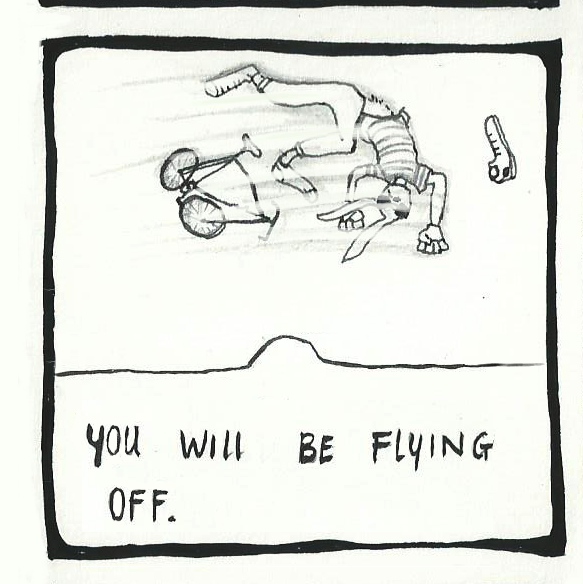 YOU WILL BE FLYING
OFF.